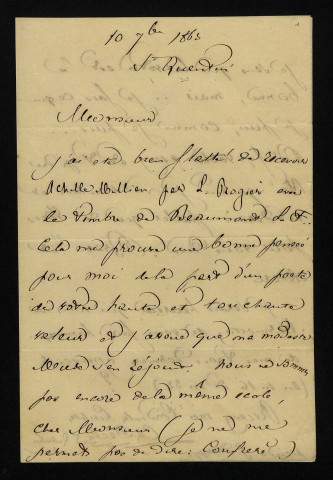 10 7bre 1863
St Quentin
Monsieur
J'ai été bien flatté de recevoir
Achille Millien, par L. Rogier avec
le timbre de Beaumont La F.
Cela me prouve une bonne pensée
pour moi de la part d'un poete
de votre haute et touchante
valeur et j'avoue que ma modeste
Muse s'en réjouit. Nous ne sommes
pas encore de la même école,
cher Monsieur (je ne me
permet pas de dire: Confrere)